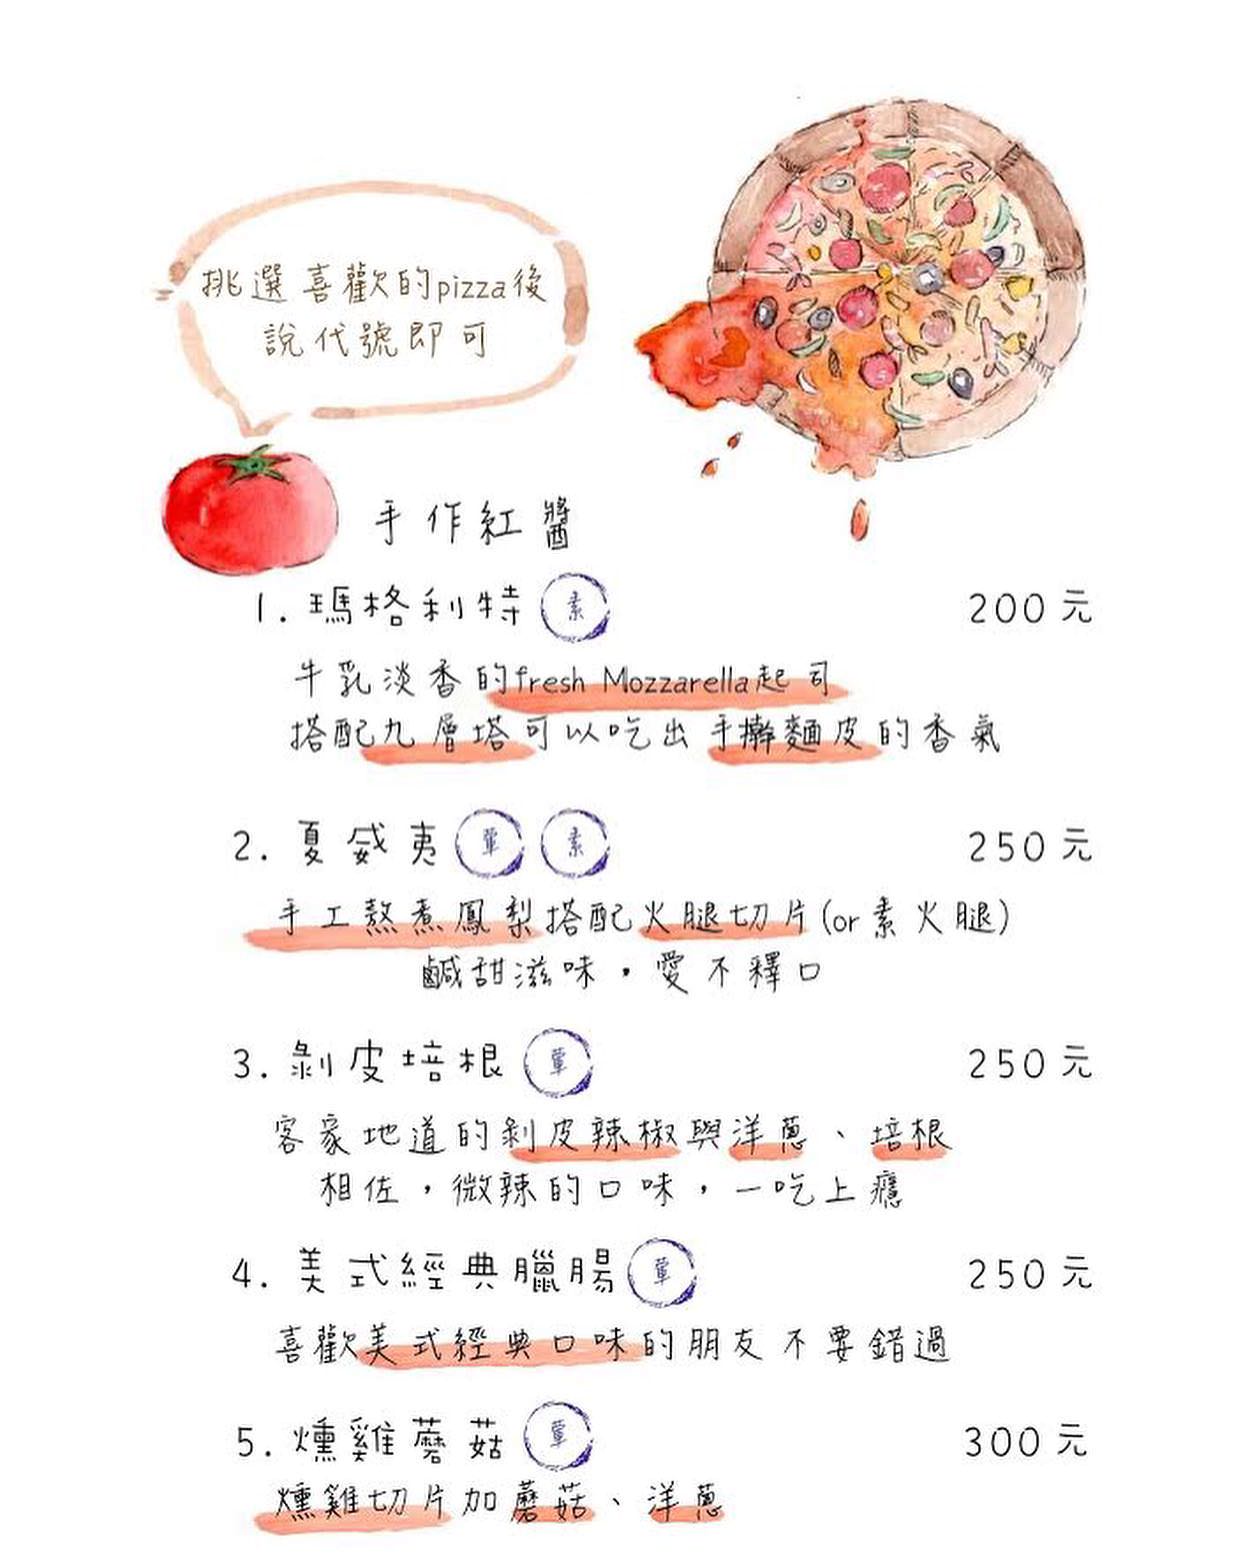 挑選喜歡的pizza後
說代號即可
手作紅醬
1. 瑪格利特 素 200元
牛乳淡香的fresh Mozzarella起司
搭配九層塔可以吃出手擀麵皮的香氣
2. 夏威夷 葷 素 250元
手工熬煮鳳梨搭配火腿切片(or素火腿)
鹹甜滋味，愛不釋口
3. 剝皮培根 葷 250元
客家地道的剝皮辣椒與洋蔥、培根
相佐，微辣的口味，一吃上癮
4. 美式經典臘腸 葷 250元
喜歡美式經典口味的朋友不要錯過
5. 燻雞蘑菇 葷 300元
燻雞切片加蘑菇、洋蔥